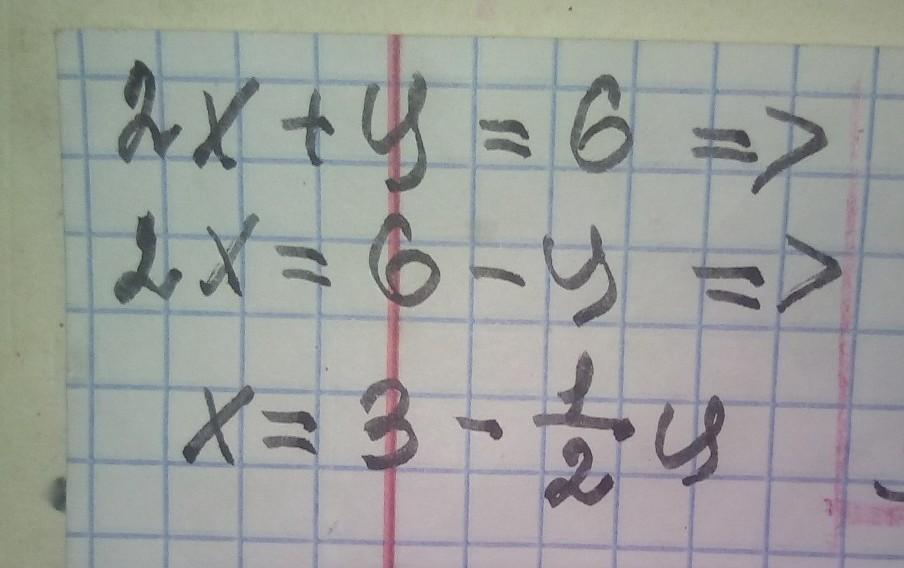 2x + y = 6 =>
2x = 6 - y =>
x = 3 - 1/2 y